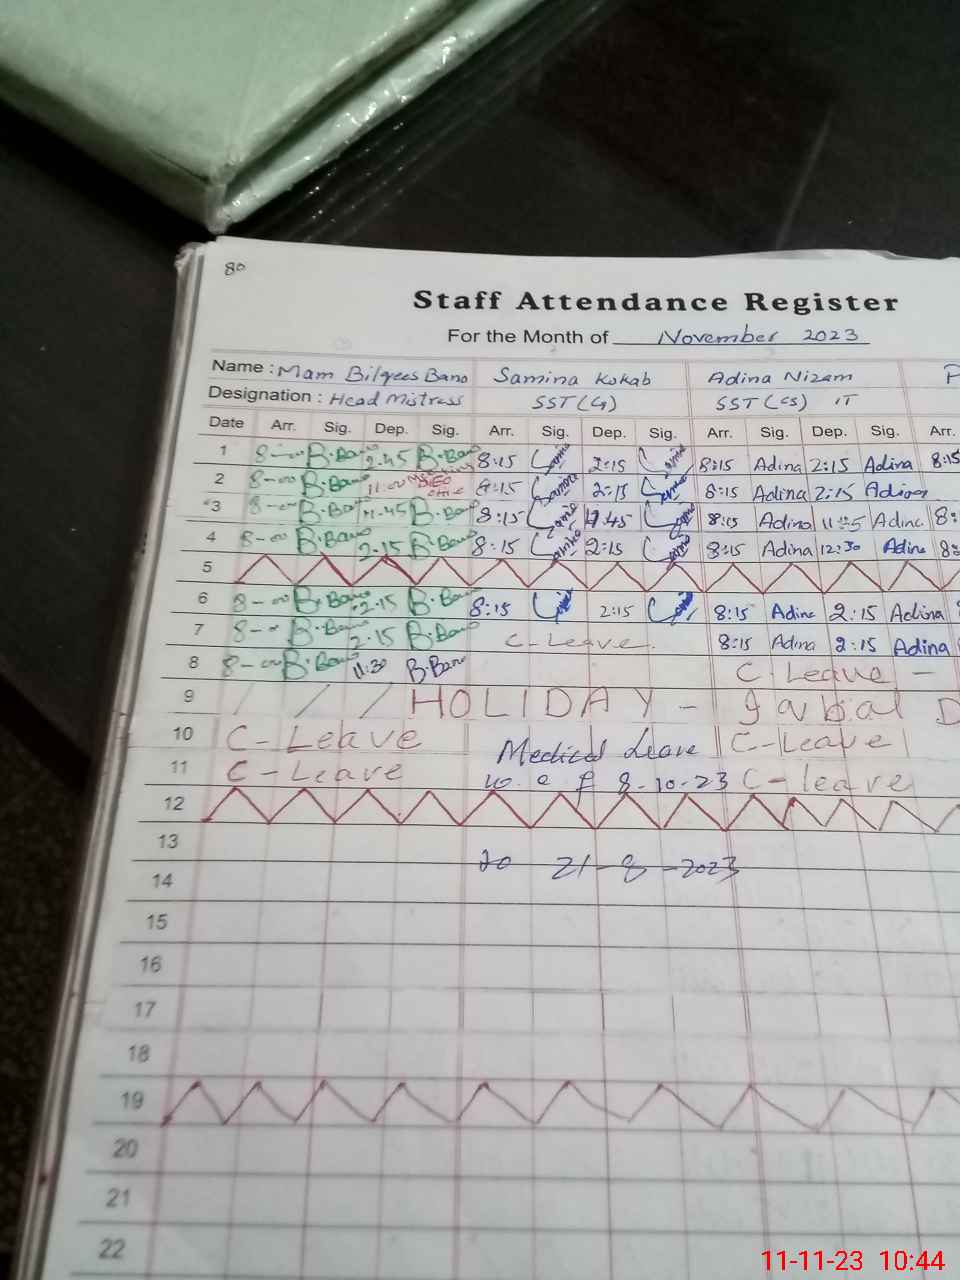 80
Staff Attendance Register
For the Month of November 2023
Name : Mam Bilqees Bano Samina Kokab Adina Nizam
Designation : Head Mistress SST (G) SST (CS) IT
Date Arr. Sig. Dep. Sig. Arr. Sig. Dep. Sig. Arr. Sig. Dep. Sig. Arr.
1 8-00 B.Bano 2.45 B.Bano 8:15 2:15 8:15 Adina 2:15 Adina 8:15
2 8-00 B.Bano 11:00 Meeting DEO office 8:15 Samina 2:15 8:15 Adina 2:15 Adina
3 8-00 B.Bano 11.45 B.Bano 8:15 11:45 8:15 Adina Adina 8:
4 8-00 B.Bano 2.15 B.Bano 8:15 2:15 8:15 Adina 12:30 Adina 8:
5
6 8-00 B.Bano 2.15 B.Bano 8:15 2:15 8:15 Adina 2:15 Adina
7 8-- B.Bano 2.15 B.Bano C-Leave. 8:15 Adina 2:15 Adina
8 8-00 B.Bano 11:30 B.Bano C. Leave -
9 / / / HOLIDAY - Iqbal D
10 C-Leave Medical Leave C-Leave
11 C-Leave w.e f 8-10-23 C-leave
12
13
to 21-8-2023
14
15
16
17
18
19
20
21
22
11-11-23 10:44